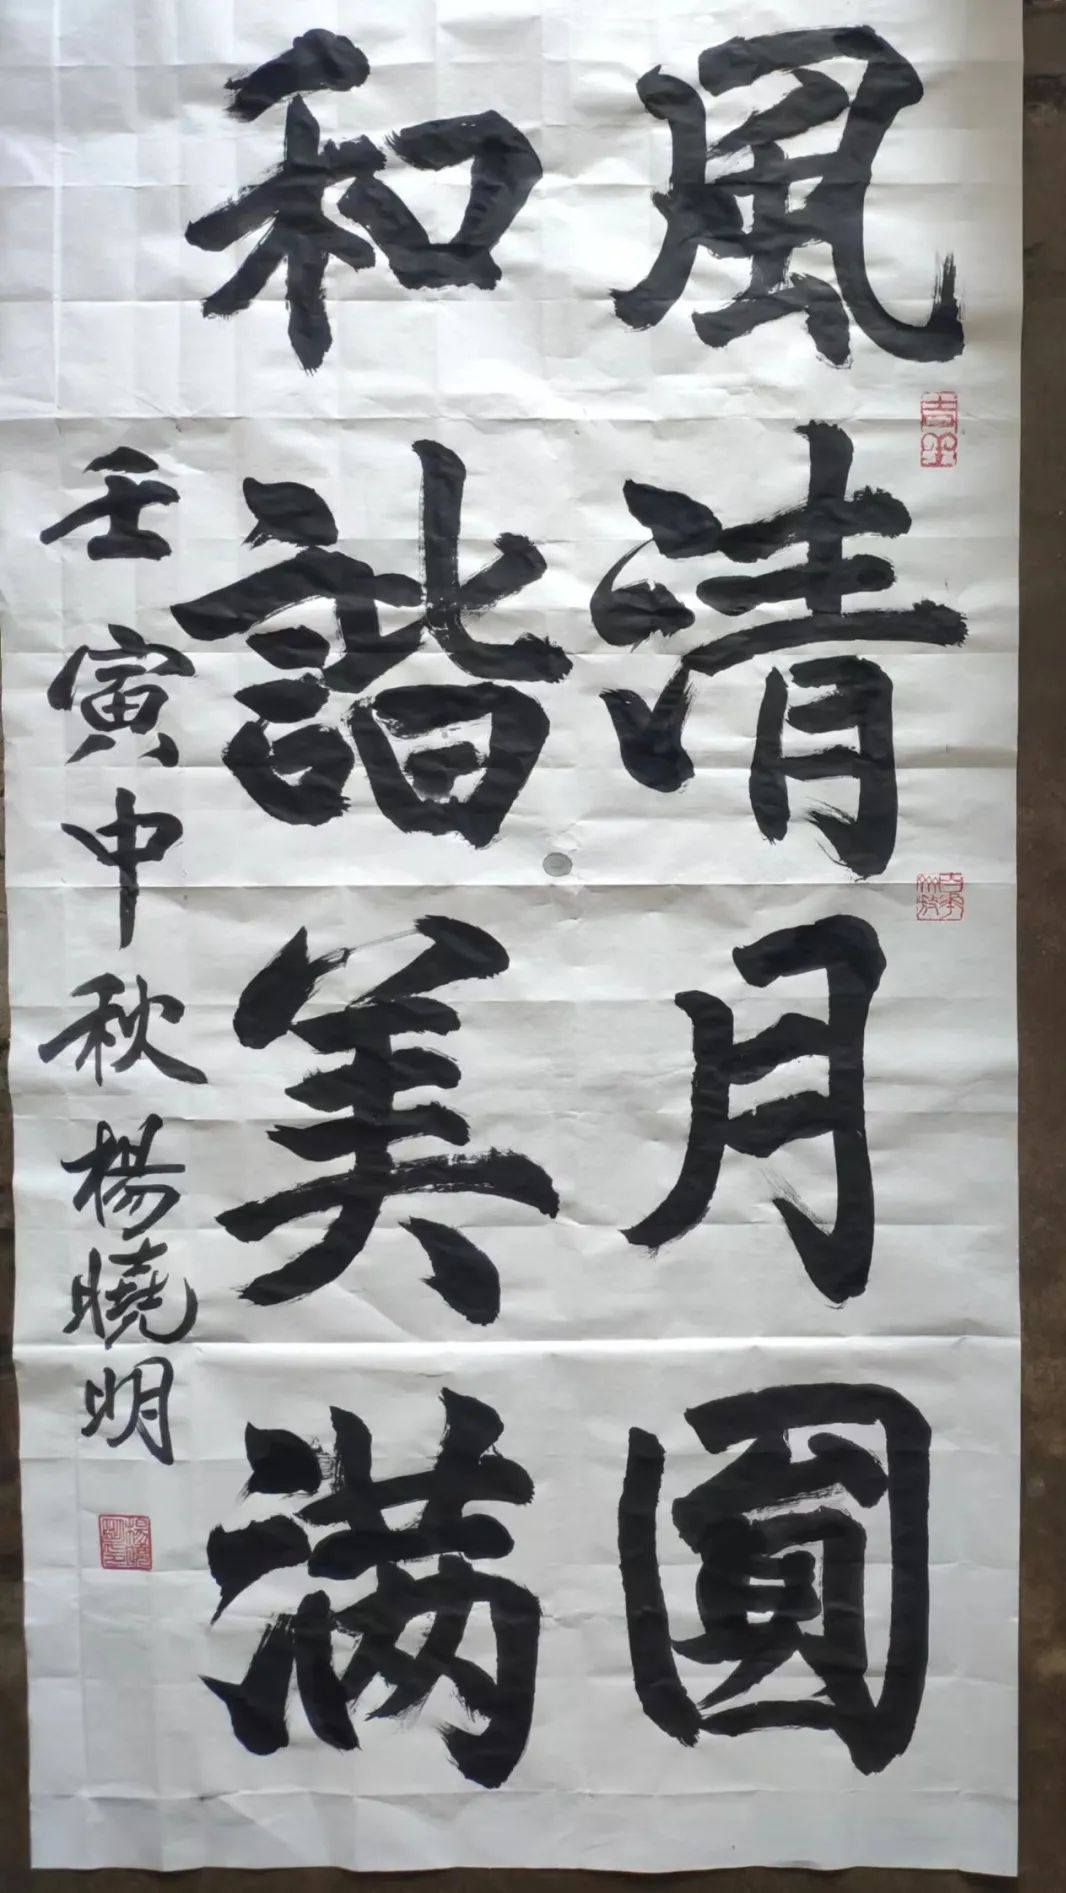 風清月圓
和諧美满
壬寅中秋楊曉明